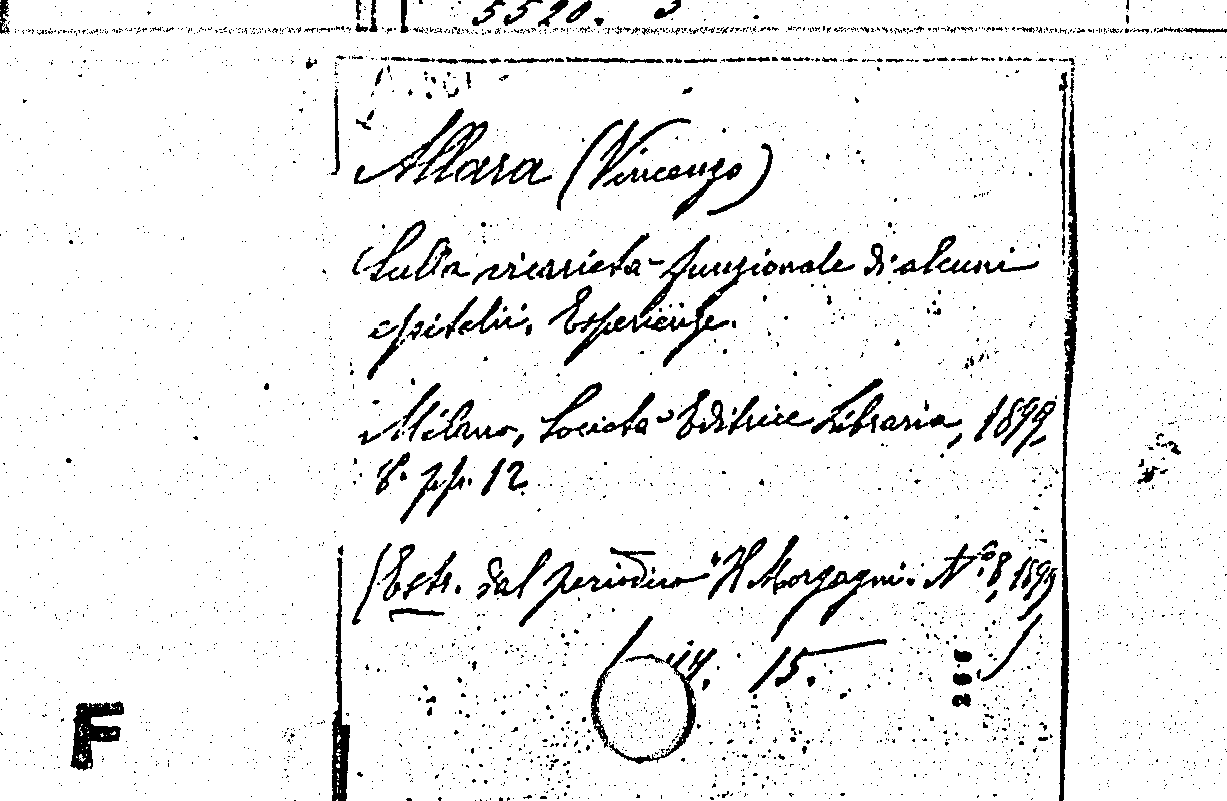 5520. 3
Allara (Vincenzo)
Sulla vicarietà funzionale di alcuni
epitelii. Esperienze.
Milano, Società Editrice Libraria, 1899,
8° pp. 12
(Estr. dal periodico "Il Morgagni" N.° 8, 1899)
15.
266
F